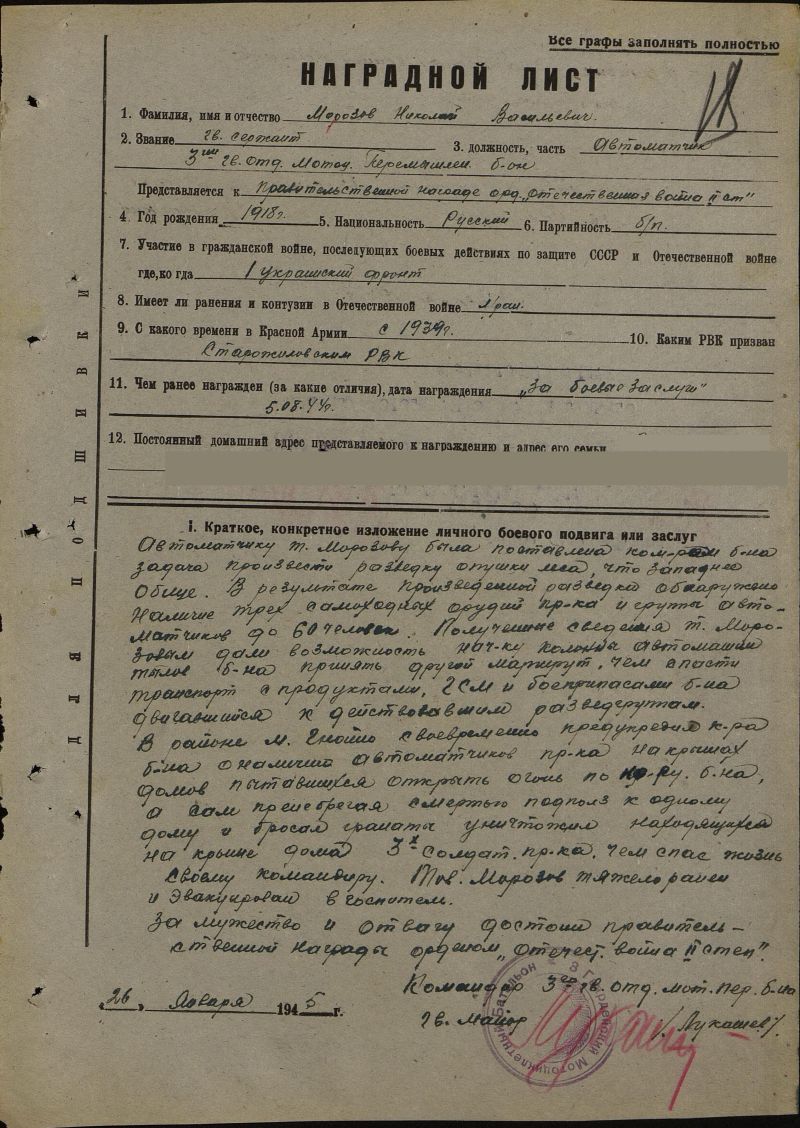 Все графы заполнять полностью
НАГРАДНОЙ ЛИСТ
1. Фамилия, имя и отчество Морозов Николай Васильевич.
2. Звание гв. сержант 3. должность, часть Автоматчик
3ий гв. отд. Мотоц. Перемышлен. б-он
Представляется к правительственной награде орд. "Отечественная война II ст"
4 Год рождения 1918г. 5. Национальность Русский 6. Партийность б/п.
7. Участие в гражданской войне, последующих боевых действиях по защите СССР и Отечественной войне
где, когда 1 украинский фронт
8. Имеет ли ранения и контузии в Отечественной войне 1 ран.
9. С какого времени в Красной Армии с 1939г. 10. Каким РВК призван
Старожиловским РВК
11. Чем ранее награжден (за какие отличия), дата награждения "За боевые заслуги"
5.08.44г.
12. Постоянный домашний адрес представляемого к награждению и адрес его семьи
I. Краткое, конкретное изложение личного боевого подвига или заслуг
Автоматчику т. Морозову была поставлена ком-ром б-на
задача произвести разведку опушки леса, что западнее
В результате произведенной разведки обнаружено
наличие трех самоходных орудий пр-ка и группы авто-
матчиков до 60 человек. Полученные сведения т. Моро-
зовым дали возможность нач-ку колонны автомашин
тылов б-на принять другой маршрут, чем спасти
транспорт с продуктами, ГСМ и боеприпасами б-на
двигавшийся к действовавшим разведгрупам.
В районе м. своевременно предупредил к-ра
б-на о наличии автоматчиков пр-ка на крышах
домов пытавшихся открыть огонь по к-ру. б-на,
а сам пренебрегая смертью подполз к одному
дому и бросая гранаты уничтожил находящихся
на крыше дома 3х солдат. пр-ка, чем спас жизнь
своему командиру. Тов. Морозов тяжело ранен
и эвакуирован в госпиталь.
За мужество и отвагу достоин правитель-
ственной награды орденом "Отечест. война II степ".
Командир 3го гв. отд. мот. пер. б-на
"26" Января 1945 г.
гв. майор /Лукашев/.
3 Гвардейский Мотоциклетный Батальон
ДЛЯ ПОДШИВКИ